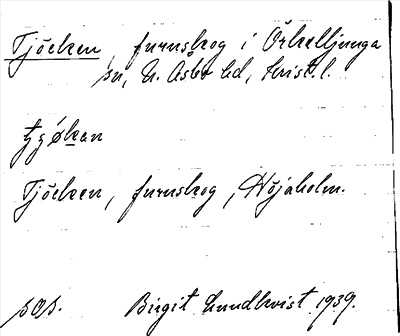 Tjöcken, furuskog i Örkelljunga
sn, N. Åsbo hd, Krist. l.
Tjöcken, furuskog, Höjaholm.
sos. Birgit Lundkvist 1939.